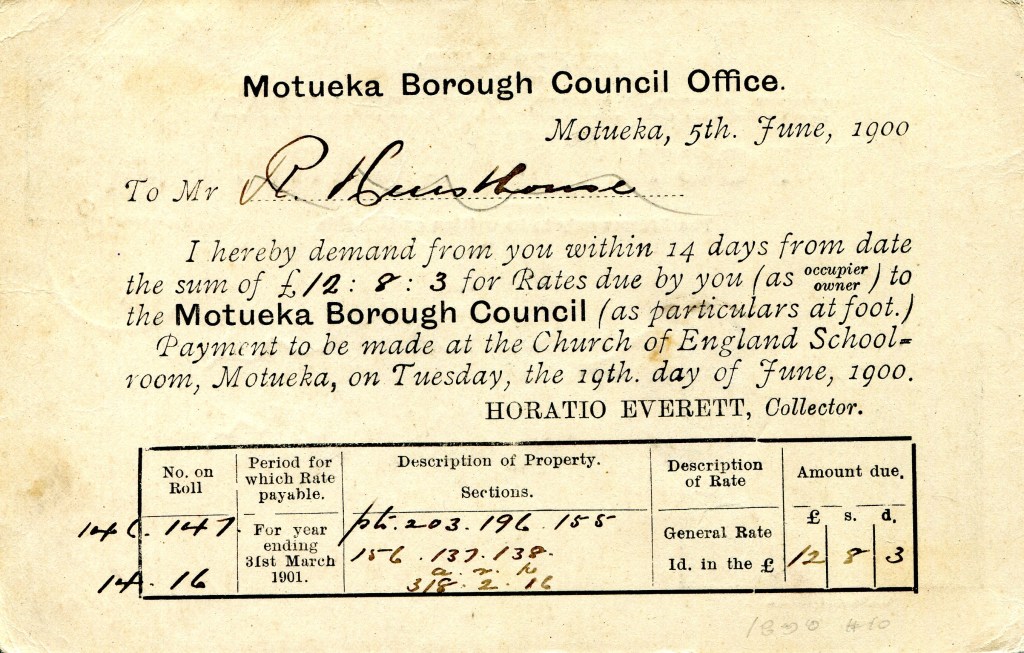 Motueka Borough Council Office.
Motueka, 5th. June, 1900
To Mr R. Hursthouse
I hereby demand from you within 14 days from date
the sum of £12 : 8 : 3 for Rates due by you (as occupier owner) to
the Motueka Borough Council (as particulars at foot.)
Payment to be made at the Church of England School=
room, Motueka, on Tuesday, the 19th. day of June, 1900.
HORATIO EVERETT, Collector.
No. on Roll | Period for which Rate payable. | Description of Property. Sections. | Description of Rate | Amount due. £ s. d.
146. 147. | For year ending 31st March 1901. | pt. 203. 196. 155
14. 16 | 156. 137. 138. | General Rate 1d. in the £ | 12 8 3
a. r. p.
318. 2. 16